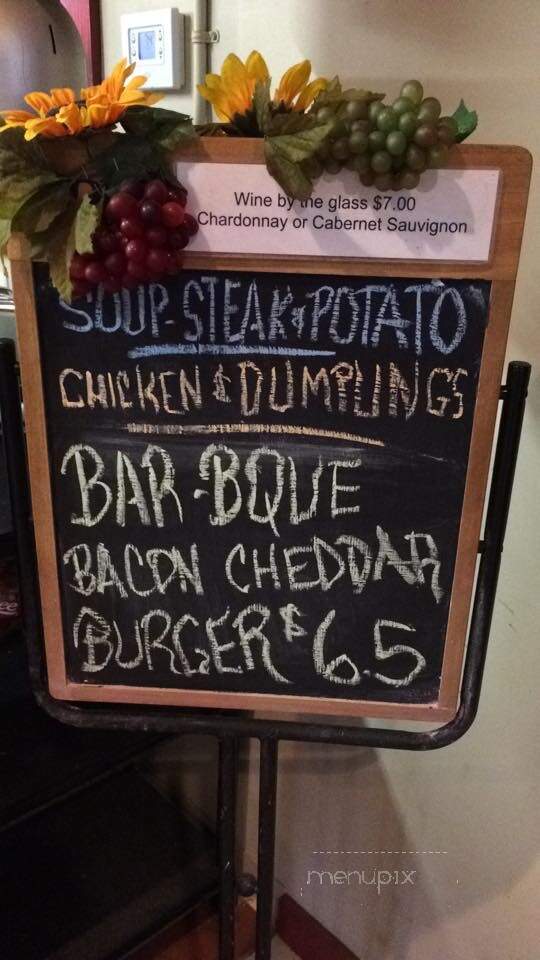 Wine by the glass $7.00
Chardonnay or Cabernet Sauvignon
SOUP-STEAK & POTATO
CHICKEN & DUMPLINGS
BAR-BQUE
BACON CHEDDAR
BURGER $6.5
menupix